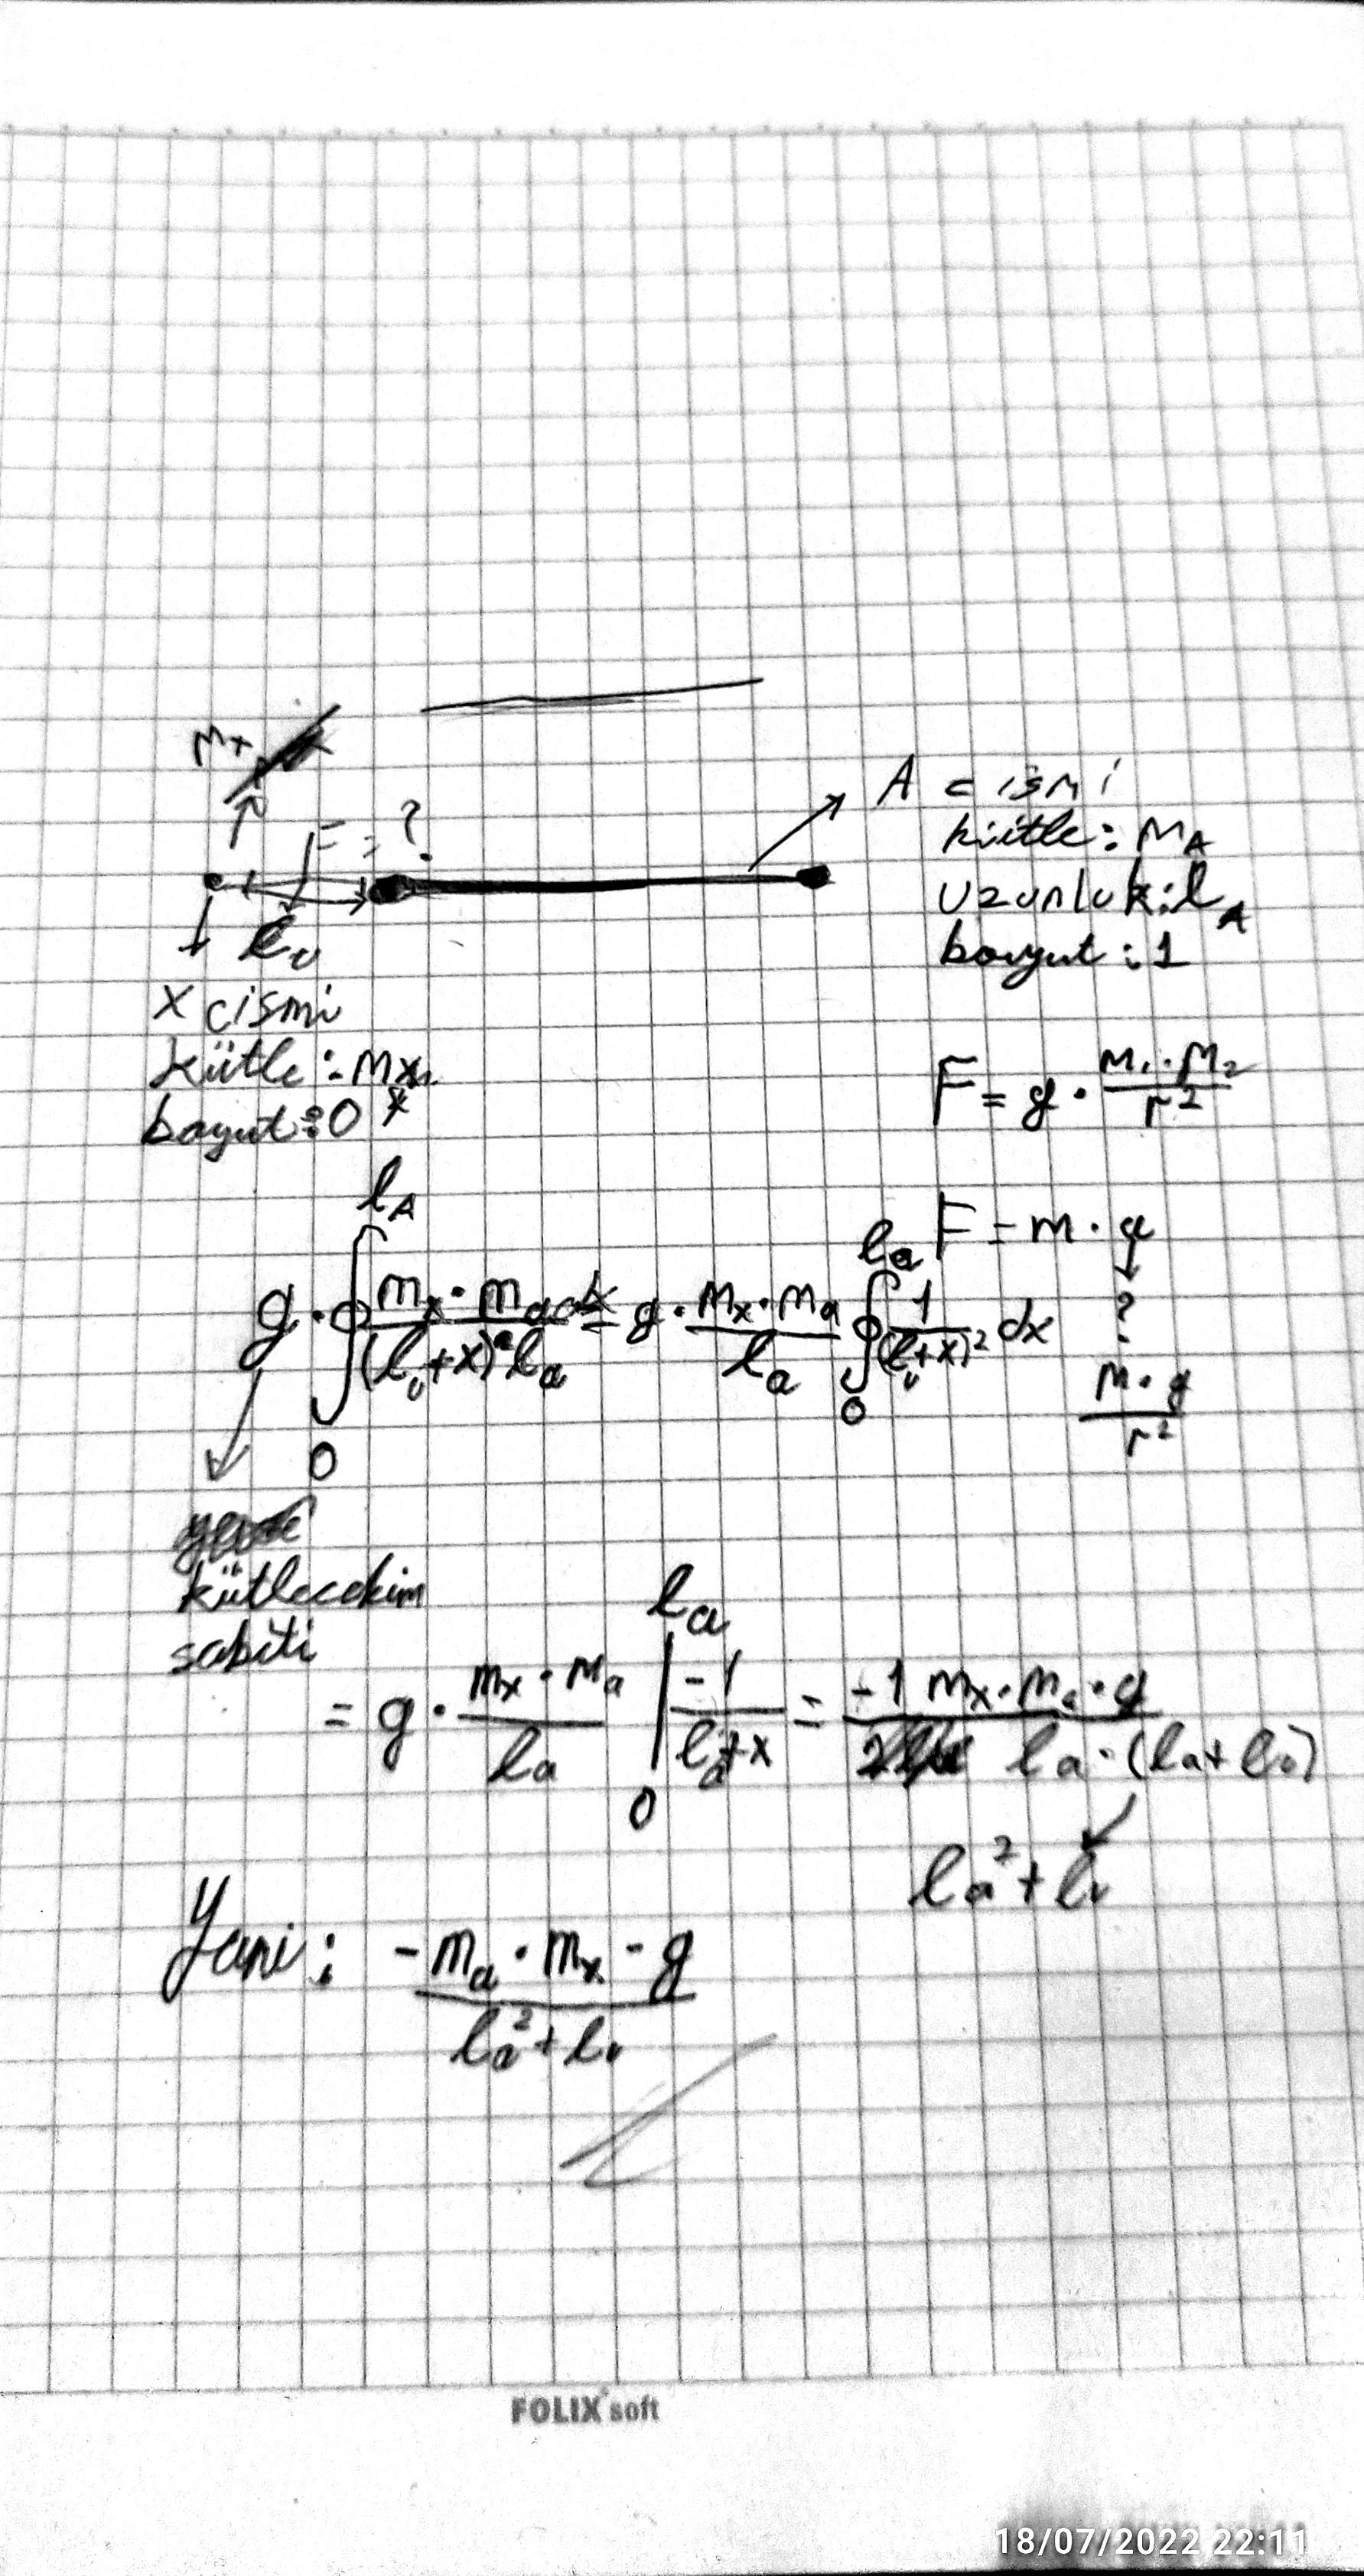 Mx
F = ?
l₀
A cismi
kütle: MA
uzunluk: lA
boyut: 1
x cismi
kütle: mx
boyut: 0
F = g · M₁·M₂ / r²
F = m · a
?
M·g / r²
g · ∫₀^lA mx · ma dx / (l₀+x)² la = g · mx · ma / la ∫₀^la 1 / (l₀+x)² dx
kütleçekim
sabiti
= g · mx · ma / la |₀^la -1 / l₀+x = -1 mx · ma · g / la · (la + l₀)
la² + l₀
Yani: -ma · mx · g / la² + l₀
FOLIX soft
18/07/2022 22:11